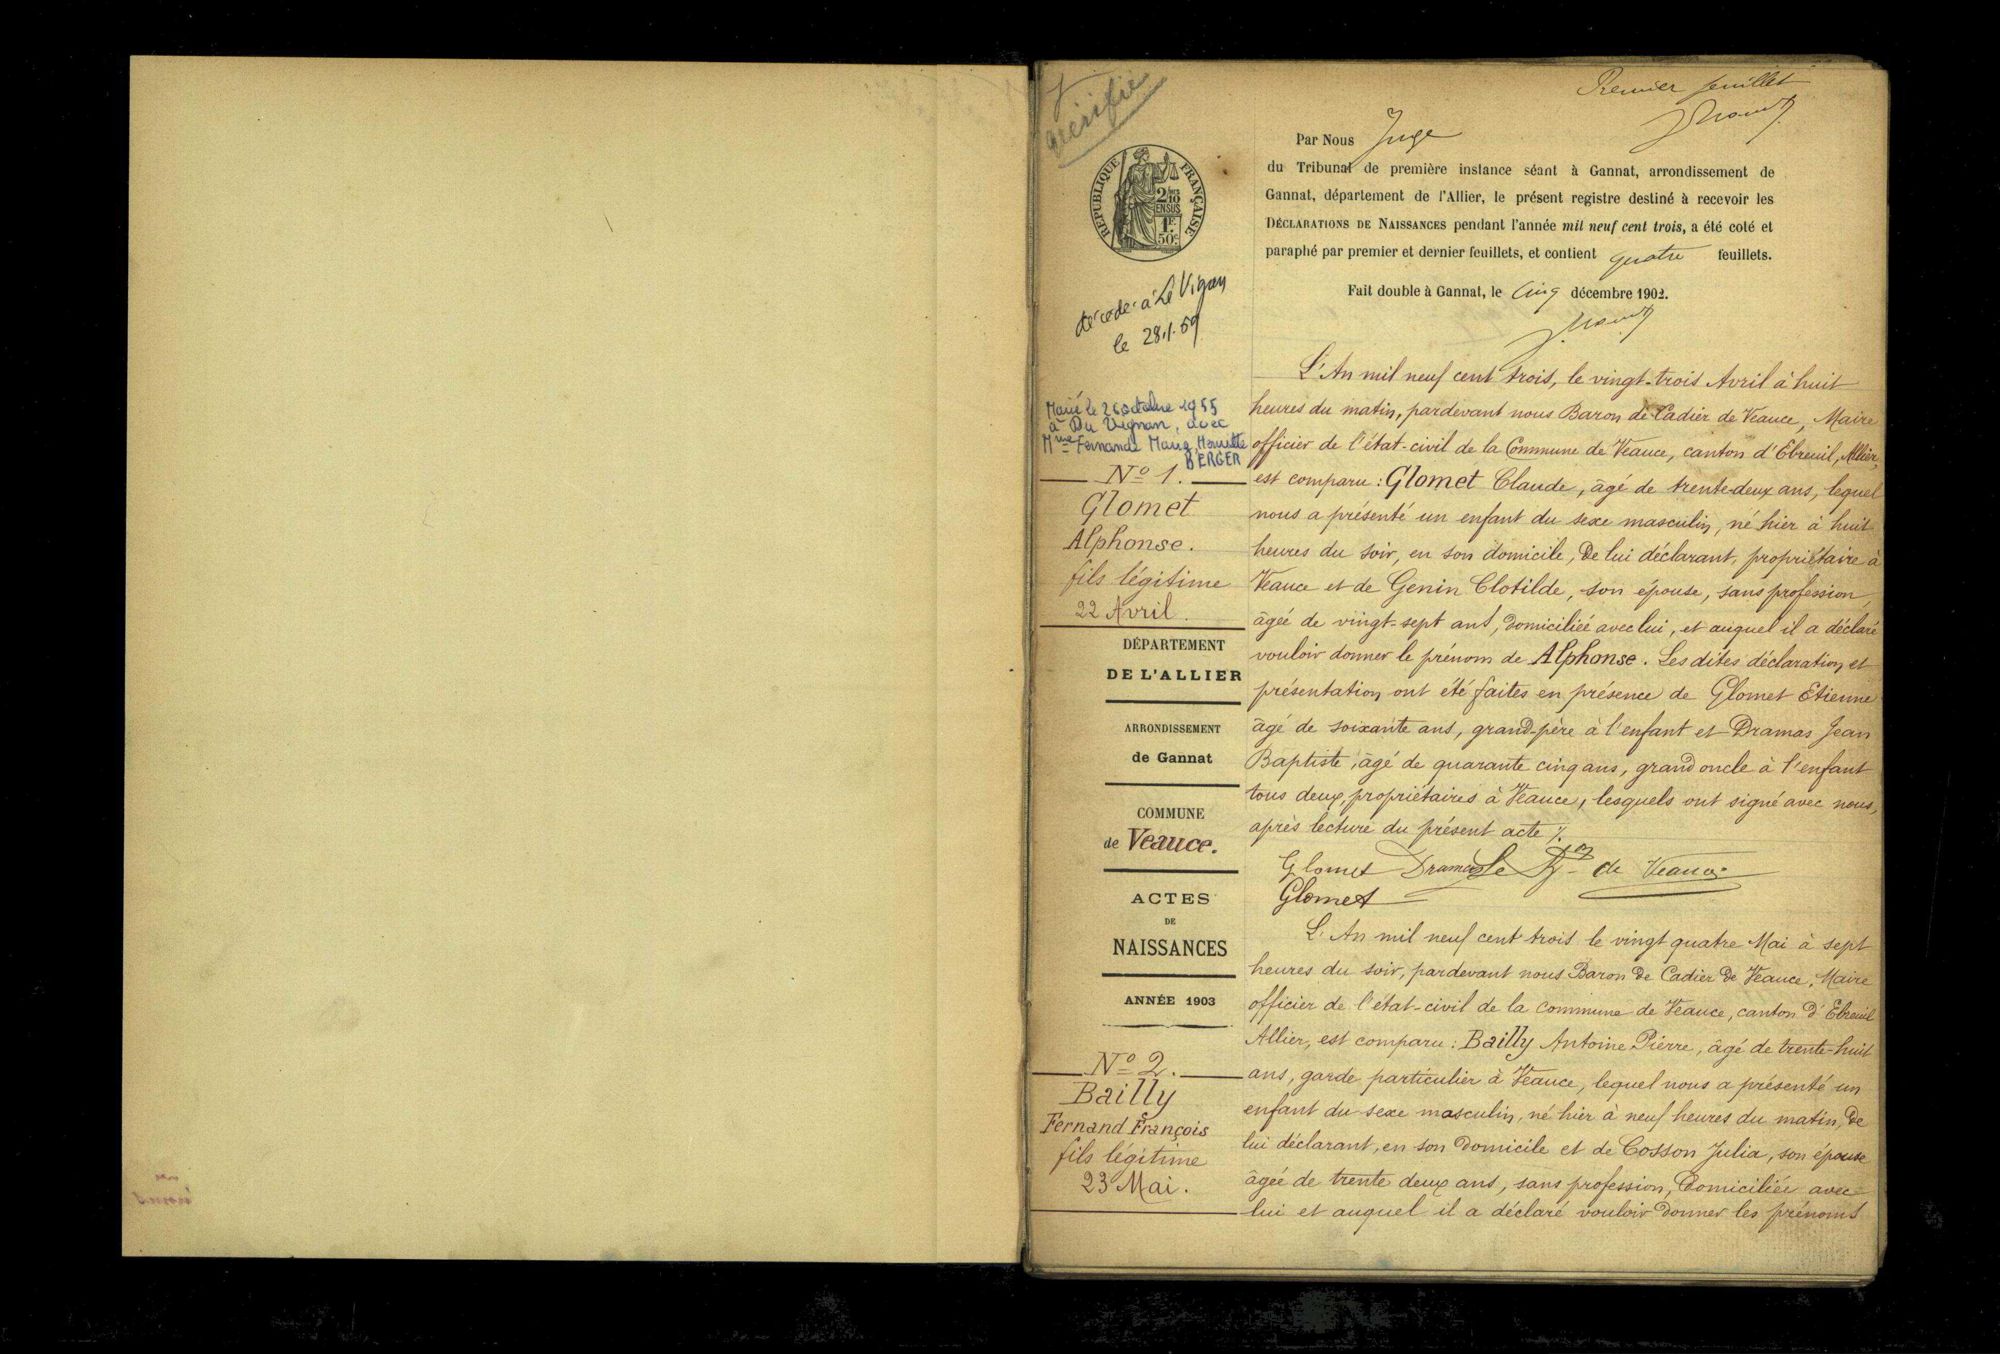 vérifié
Premier feuillet
Par Nous Juge
du Tribunal de première instance séant à Gannat, arrondissement de
Gannat, département de l'Allier, le présent registre destiné à recevoir les
DÉCLARATIONS DE NAISSANCES pendant l'année mil neuf cent trois, a été coté et
paraphé par premier et dernier feuillets, et contient quatre feuillets.
Fait double à Gannat, le Cinq décembre 1902.
RÉPUBLIQUE FRANÇAISE
2/10
EN SUS
1F
50c
décédé à Le Vigan
le 28.1.59
Marié le 26 octobre 1955
à Du Vignan, avec
Mme Fernande Marie Henriette
BERGER
No 1.
Glomet
Alphonse.
fils légitime
22 Avril.
DÉPARTEMENT
DE L'ALLIER
ARRONDISSEMENT
de Gannat
COMMUNE
de Veauce.
ACTES
DE
NAISSANCES
ANNÉE 1903
No 2.
Bailly
Fernand François
fils légitime
23 Mai.
L'An mil neuf cent trois, le vingt-trois Avril à huit
heures du matin, pardevant nous Baron de Cadier de Veauce, Maire
officier de l'état-civil de la Commune de Veauce, canton d'Ebreuil, Allier,
est comparu : Glomet Claude, âgé de trente-deux ans, lequel
nous a présenté un enfant du sexe masculin, né hier à huit
heures du soir, en son domicile, de lui déclarant, propriétaire à
Veauce et de Genin Clotilde, son épouse, sans profession,
âgée de vingt-sept ans, domiciliée avec lui, et auquel il a déclaré
vouloir donner le prénom de Alphonse. Les dites déclaration et
présentation ont été faites en présence de Glomet Etienne
âgé de soixante ans, grand-père à l'enfant et Dramas Jean
Baptiste, âgé de quarante cinq ans, grand oncle à l'enfant
tous deux, propriétaires à Veauce, lesquels ont signé avec nous,
après lecture du présent acte ./.
Glomet Dramas Le Bon de Veauce
Glomet
L'An mil neuf cent trois le vingt quatre Mai à sept
heures du soir, pardevant nous Baron de Cadier de Veauce, Maire
officier de l'état-civil de la commune de Veauce, canton d'Ebreuil
Allier, est comparu : Bailly Antoine Pierre, âgé de trente-huit
ans, garde particulier à Veauce, lequel nous a présenté un
enfant du sexe masculin, né hier à neuf heures du matin, de
lui déclarant, en son domicile et de Cosson Julia, son épouse
âgée de trente deux ans, sans profession, domiciliée avec
lui et auquel il a déclaré vouloir donner les prénoms